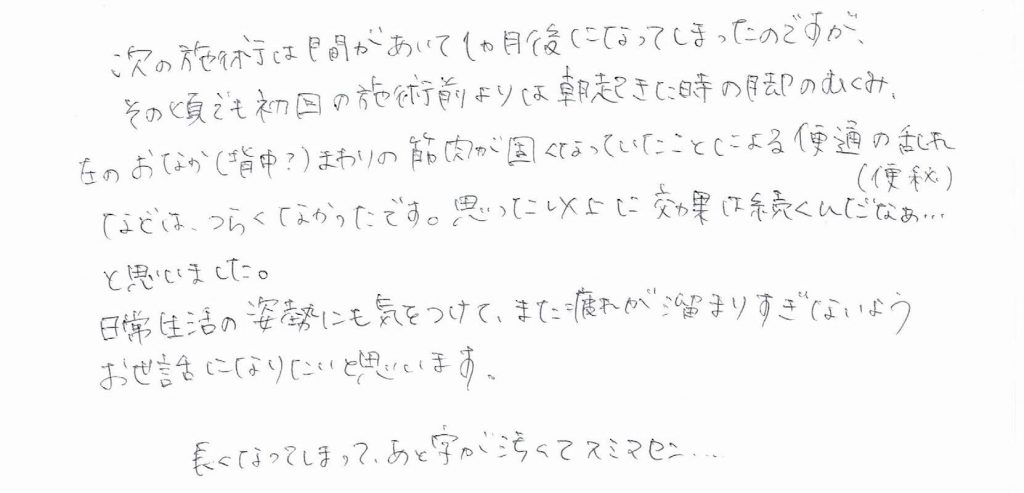 次の施術は間があいて1カ月後になってしまったのですが、
その頃でも初回の施術前よりは朝起きた時の脚のむくみ、
左のおなか(背中?)まわりの筋肉が固くなっていたことによる便通の乱れ
(便秘)
などは、つらくなかったです。思った以上に効果は続くんだなぁ…
と思いました。
日常生活の姿勢にも気をつけて、また疲れが溜まりすぎないよう
お世話になりたいと思います。
長くなってしまって、あと字が汚くてスミマセン…